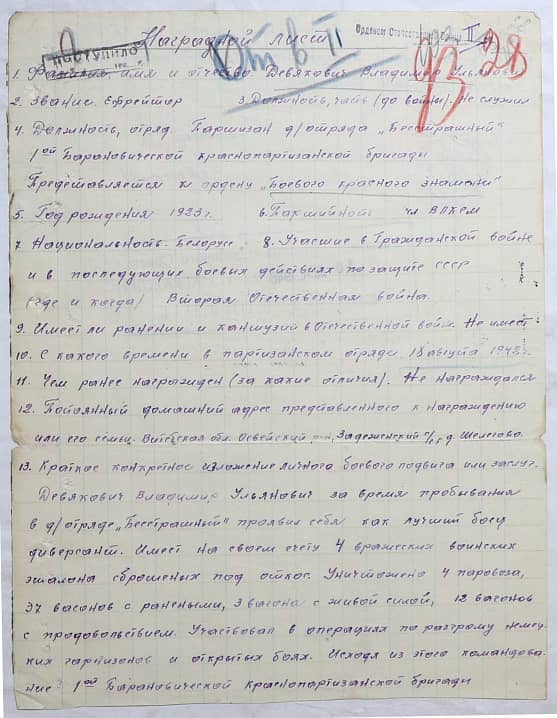 Наградной лист
Поступило
От в II
Орденом Отечественной войны II
93 28
1. Фамилия, имя и отчество. Девякович Владимир Ульянович
2. Звание. Ефрейтор 3. Должность, часть (до войны). Не служил
4. Должность, отряд Партизан д/отряда „Бесстрашный"
1ой Барановической краснопартизанской бригады
Представляется к ордену „Боевого красного знамени"
5. Год рождения 1923 г. 6. Партийность чл ВЛКСМ
7. Национальность. Белорус 8. Участие в Гражданской войне
и в последующих боевых действиях по защите СССР
(где и когда) Вторая Отечественная война.
9. Имеет ли ранении и контузии в Отечественной войн. Не имеет
10. С какого времени в партизанском отряде. 18 августа 1942 г.
11. Чем ранее награжден (за какие отличия). Не награждался
12. Постоянный домашний адрес представленного к награждению
или его семьи. Витебская обл. Освейский р-н, с/с д. Шелегово.
13. Краткое конкретное изложение личного боевого подвига или заслуг.
Девякович Владимир Ульянович за время пробывания
в д/отряде „Бесстрашный" проявил себя как лучший боец
диверсант. Имеет на своем счету 4 вражеских воинских
эшалона сброшеных под откос. Уничтожено 4 паровоза,
37 вагонов с ранеными, 3 вагона с живой силой, 12 вагонов
с продовольствием. Участвовал в операциях по разгрому немец-
ких гарнизонов и открытых боях. Исходя из этого командова-
ние 1ой Барановической краснопартизанской бригады